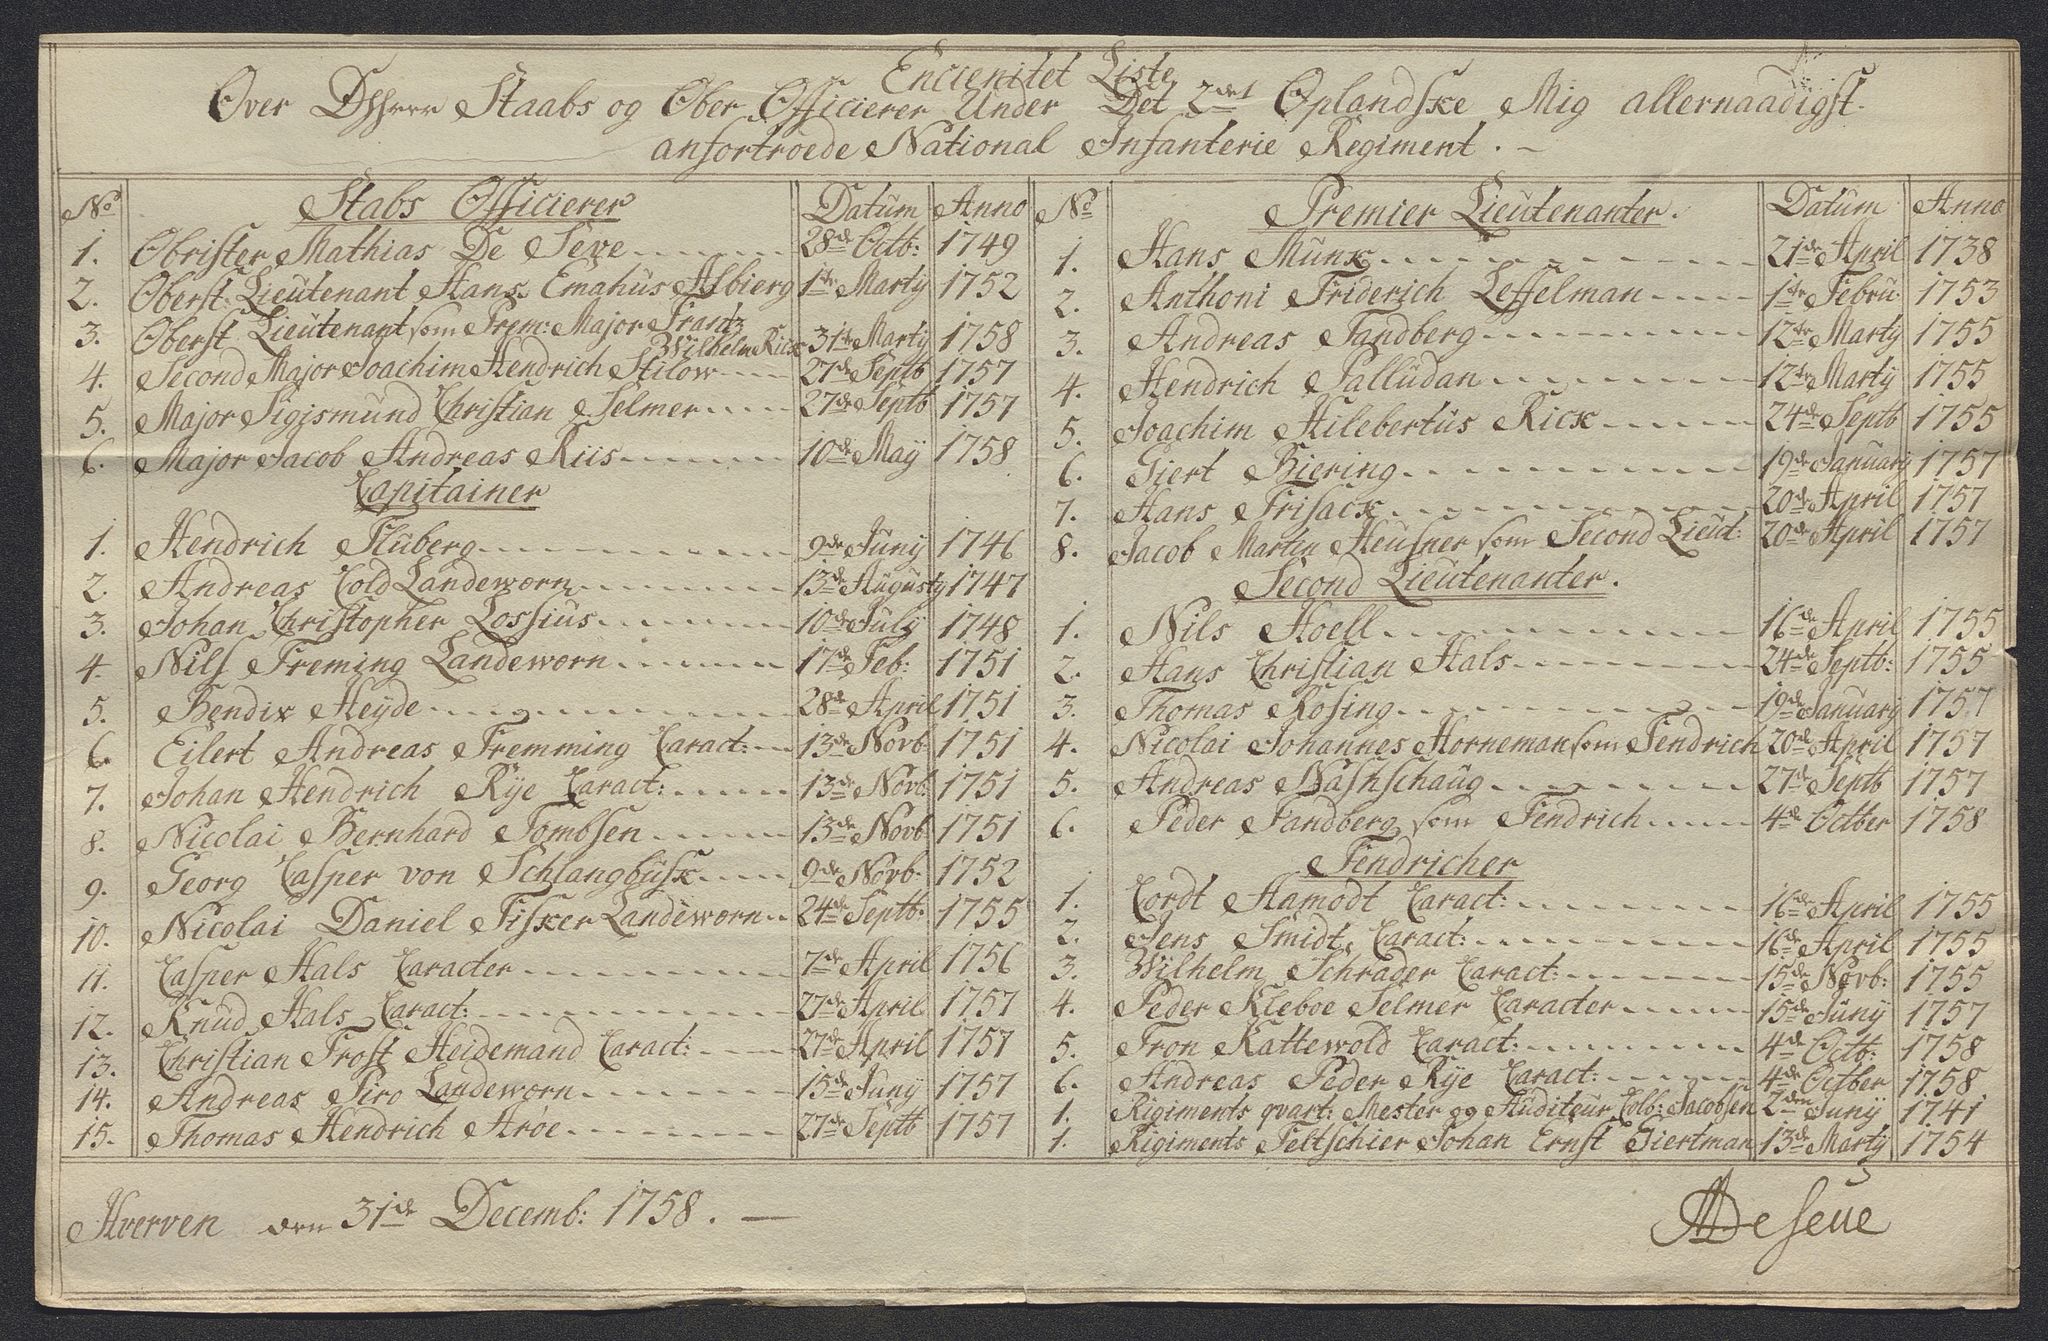 Encienitet Liste
Over Dhherrer Staabs og Ober Officierer Under Det 2det Oplandske Mig allernaadigst
anfortroede National Infanterie Regiment . –
No Stabs Officierer Datum Anno
1. Obrister Mathias De Seve 28de Octb: 1749
2. Oberst Lieutenant Hans Emahus Asbierg 1te Marty 1752
3. Oberst Lieutenant som Prem: Major Frantz
Wilhelm Rick 31te Marty 1758
4. Second Major Joachim Hendrich Stilow 27de Septb 1757
5. Major Sigismund Christian Selmer 27de Septb 1757
6. Major Jacob Andreas Riis 10de May 1758
Capitainer
1. Hendrich Stuberg 9de Juny 1746
2. Andreas Cold Landeworn 13de Augusty 1747
3. Johan Christopher Lossius 10de July 1748
4. Nils Freming Landeworn 17de Feb: 1751
5. Bendix Heyde 28de April 1751
6. Eilert Andreas Fremming Caract: 13de Novb 1751
7. Johan Hendrich Rye Caract: 13de Novb: 1751
8. Nicolai Bernhard Tombsen 13de Novb 1751
9. Georg Casper von Schlangbusk 9de Novb: 1752
10. Nicolai Daniel Fisker Landeworn 24de Septb: 1755
11. Casper Hals Caracter 7de April 1756
12. Knud Hals Caract: 27de April 1757
13. Christian Frost Heidemand Caract: 27de April 1757
14. Andreas Piro Landeworn 15de Juny 1757
15. Thomas Hendrich Arøe 27de Septb 1757
No Premier Lieutenanter. Datum Anno
1. Hans Munk 21de April 1738
2. Anthoni Friderich Leffelman 1te Febru: 1753
3. Andreas Sandberg 12te Marty 1755
4. Hendrich Palludan 12te Marty 1755
5. Joachim Hilebertus Rick 24de Septb 1755
6. Giert Biering 19de January 1757
7. Hans Frisack 20de April 1757
8. Jacob Martin Heusner som Second Lieut: 20de April 1757
Second Lieutenanter.
1. Nils Hoell 16de April 1755
2. Hans Christian Hals 24de Septb: 1755
3. Thomas Rosing 19de January 1757
4. Nicolai Johannes Horneman som Fendrich 20de April 1757
5. Andreas Nashschaug 27de Septb 1757
6. Peder Sandberg som Fendrich 4de Octber 1758
Fendricher
1. Cordt Aamodt Caract: 16de April 1755
2. Jens Smidt Caract: 16de April 1755
3. Wilhelm Schrader Caract: 15de Novb: 1755
4. Peder Kleboe Selmer Caracter 15de Juny 1757
5. Tron Kattewold Caract: 4de Octb: 1758
6. Andreas Peder Rye Caract: 4de Octber 1758
1. Rigiments qvart: Mester og Auditeur Colb: Jacobsen 2den Juny 1741
1. Rigiments Feltschier Johan Ernst Giertman 13de Marty 1754
Hverven den 31de Decemb: 1758. –
MDeseue